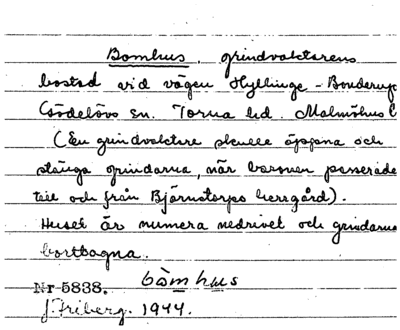 Bomhus, grindvaktarens
bostad vid vägen Hyllinge - Bonderup
Gödelövs sn. Torna hd. Malmöhus l
(En grindvaktare skulle öppna och
stänga grindarna, när baronen passerade
till och från Björnstorps herrgård).
Huset är numera nedrivet och grindarna
borttagna.
Nr 5838. bòmhus
J. Friberg. 1944.